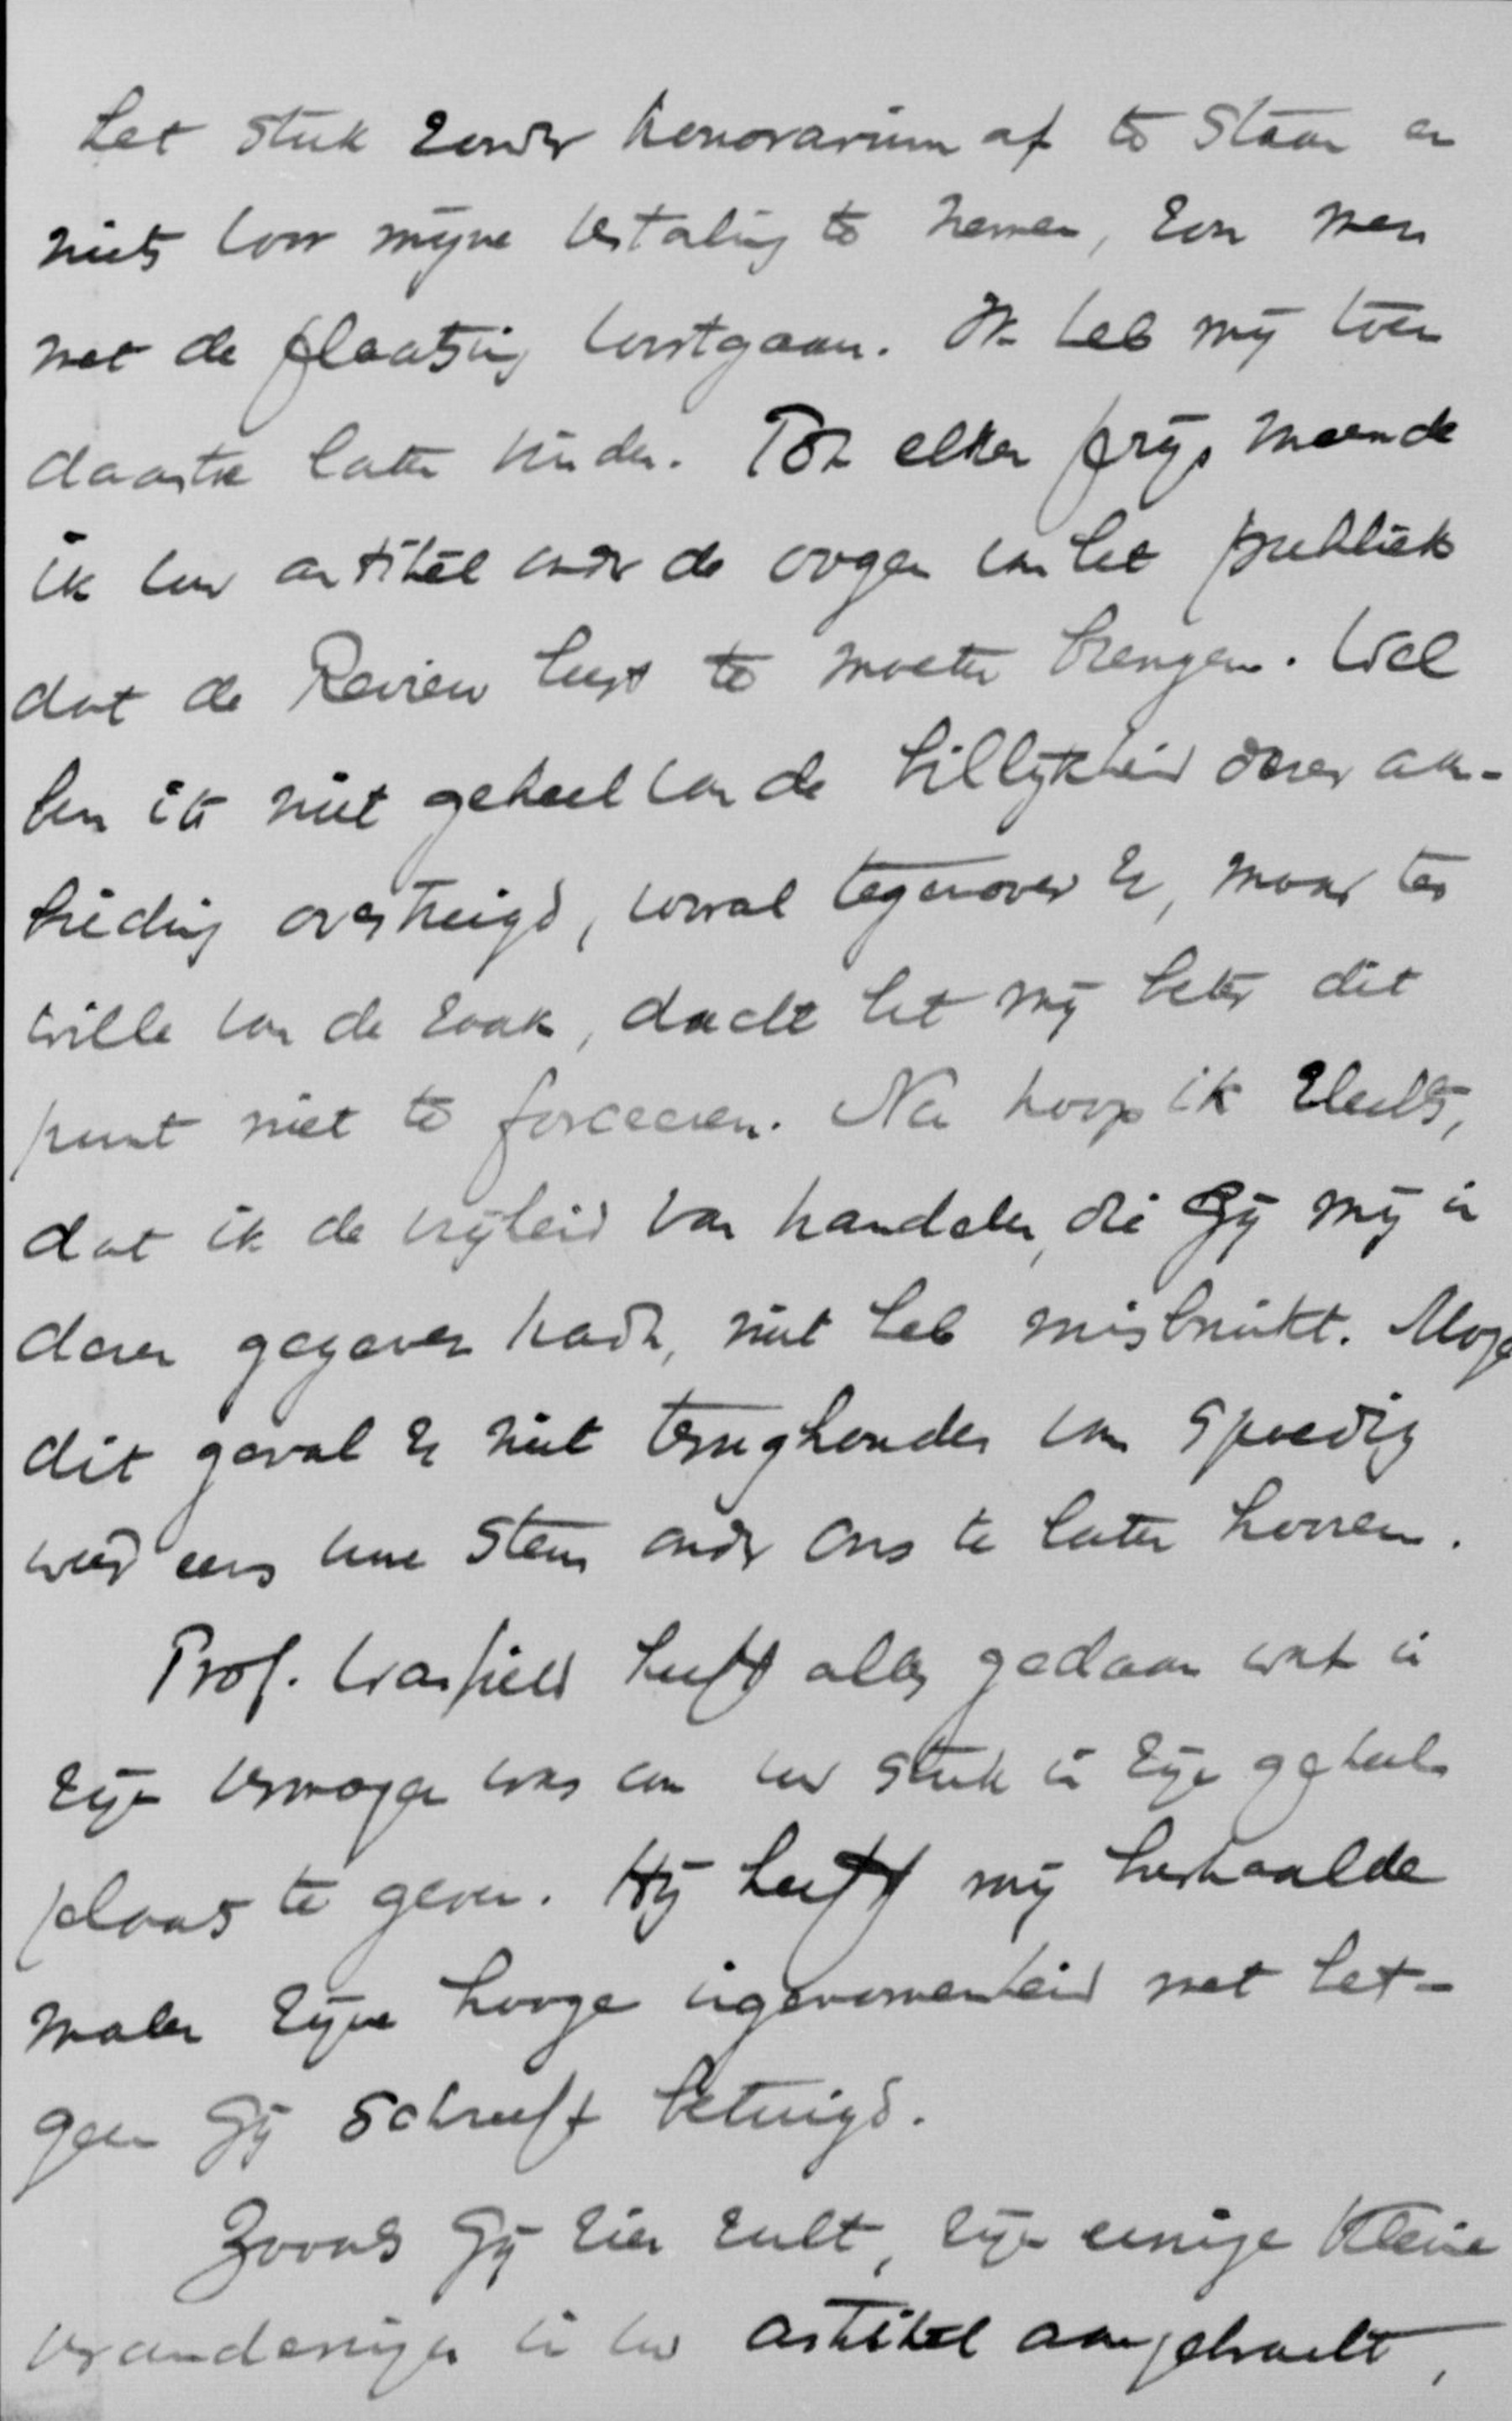 het stuk zonder honorarium af te staan en
niets voor mijne vertaling te nemen, zou men
met de plaatsing voortgaan. Ik heb mij toen
daartoe laten vinden. Tot elken prijs meende
ik uw artikel onder de oogen van het publiek
dat de Review leest te moeten brengen. Wel
ben ik niet geheel van de billijkheid dezer aan-
bieding overtuigd, vooral tegenover U, maar ter
wille van de zaak, dacht het mij beter dit
punt niet te forceeren. Nu hoop ik slechts,
dat ik de vrijheid van handelen, die Gij mij in
dezen gegeven hadt, niet heb misbruikt. Moge
dit geval U niet terughouden om spoedig
weer eens uwe stem onder ons te laten hooren.
Prof. Warfield heeft alles gedaan wat in
zijn vermogen was om uw stuk in zijn geheel
plaats te geven. Hij heeft mij herhaalde
malen zijne hooge ingenomenheid met het-
geen Gij schreeft betuigd.
Zooals Gij zien zult, zijn eenige kleine
veranderingen in uw artikel aangebracht,